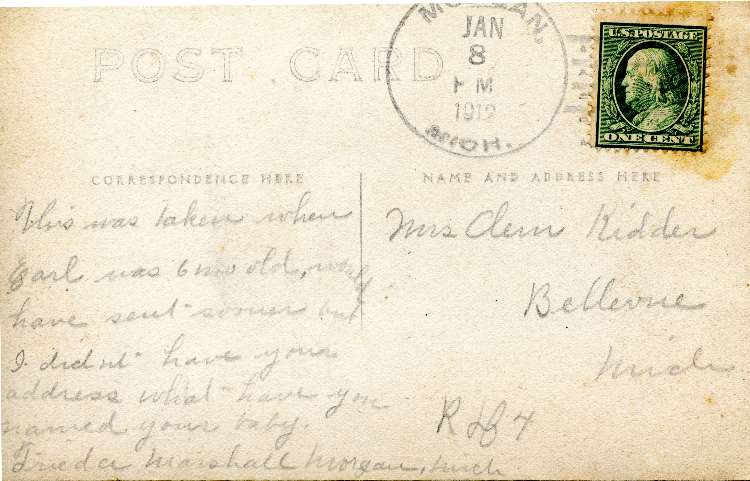 MORGAN,
JAN
8
PM
1912
MICH.
U.S. POSTAGE
ONE CENT
POST CARD
CORRESPONDENCE HERE
NAME AND ADDRESS HERE
This was taken when
Earl was 6 mo old,
have sent sooner but
I didnt have your
address what have you
named your baby.
Marshall Morgan, Mich
Mrs Clem Kidder
Bellevue
Mich
R 4